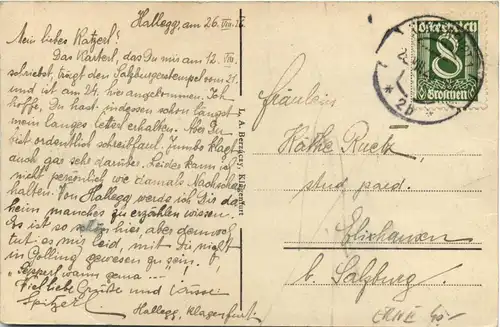 Hallegg, am 26. VIII. 25
Mein liebes Katzerl!
Das Karterl, das Du mir am 12. VIII.
schriebst, trägt den Salzburgerstempel vom 21.
und ist am 24. hier angekommen. Ich
hoffe, Du hast indessen schon längst
mein langes letter erhalten. Aber Du
bist ordentlich schreibfaul. Jumbo klagt
auch gar sehr darüber. Leider kann ich
nicht persönlich wie damals Nachschau
halten. Von Hallegg werde ich Dir da-
heim manches zu erzählen wissen.
Es ist so schön hier aber dennoch
tut es mir leid, mit Dir nicht
in Polling gewesen zu sein.
"Schperl wann gema ---"!
Viel liebe Grüße und Küsse
Spitzerl
Hallegg, Klagenfurt.
L. A. Bernaczy, Klagenfurt
Österreich
8
Groschen
* 2b *
Fräulein
Käthe Ruetz
stud paed.
Elixhausen
b. Salzburg.